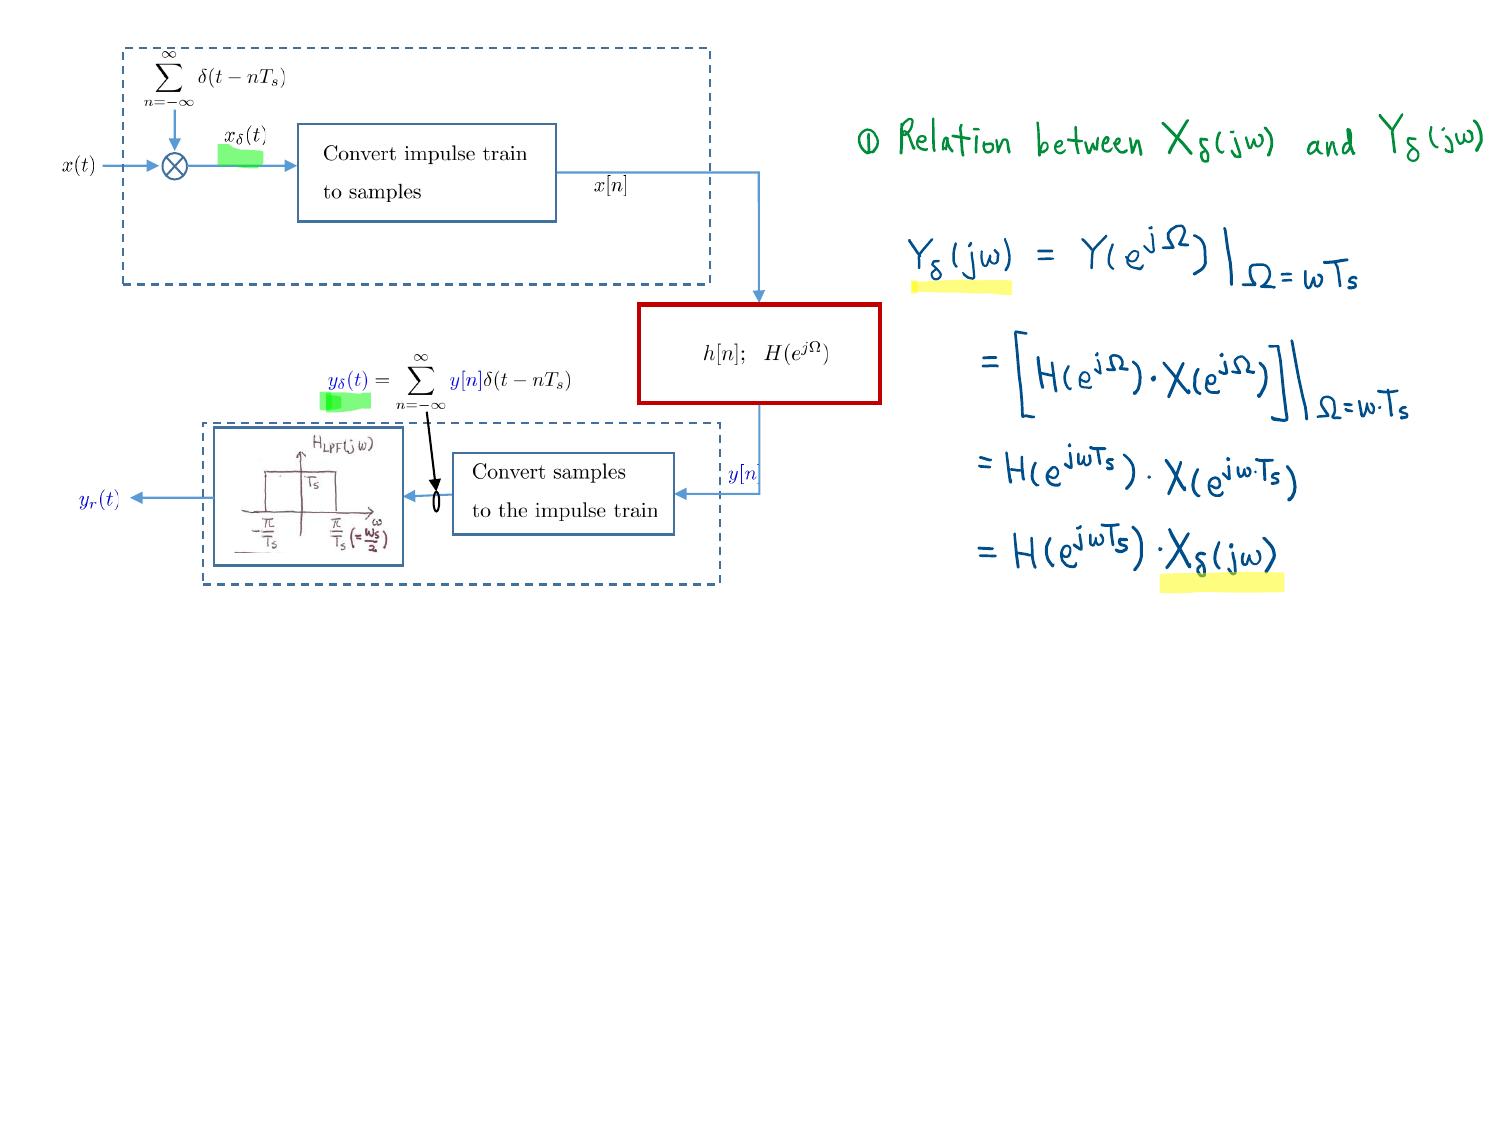 ∞
∑ δ(t − nTₛ)
n=−∞
x_δ(t)
x(t)
Convert impulse train
to samples
x[n]
h[n]; H(e^{jΩ})
y_δ(t) = ∑_{n=−∞}^{∞} y[n]δ(t − nTₛ)
H_LPF(jω)
Tₛ
ω
−π/Tₛ
π/Tₛ (=ωₛ/2)
Convert samples
to the impulse train
y[n]
y_r(t)
① Relation between X_δ(jω) and Y_δ(jω)
Y_δ(jω) = Y(e^{jΩ})|_{Ω=ωTₛ}
= [H(e^{jΩ})·X(e^{jΩ})]|_{Ω=ω·Tₛ}
= H(e^{jωTₛ}) · X(e^{jω·Tₛ})
= H(e^{jωTₛ}) · X_δ(jω)